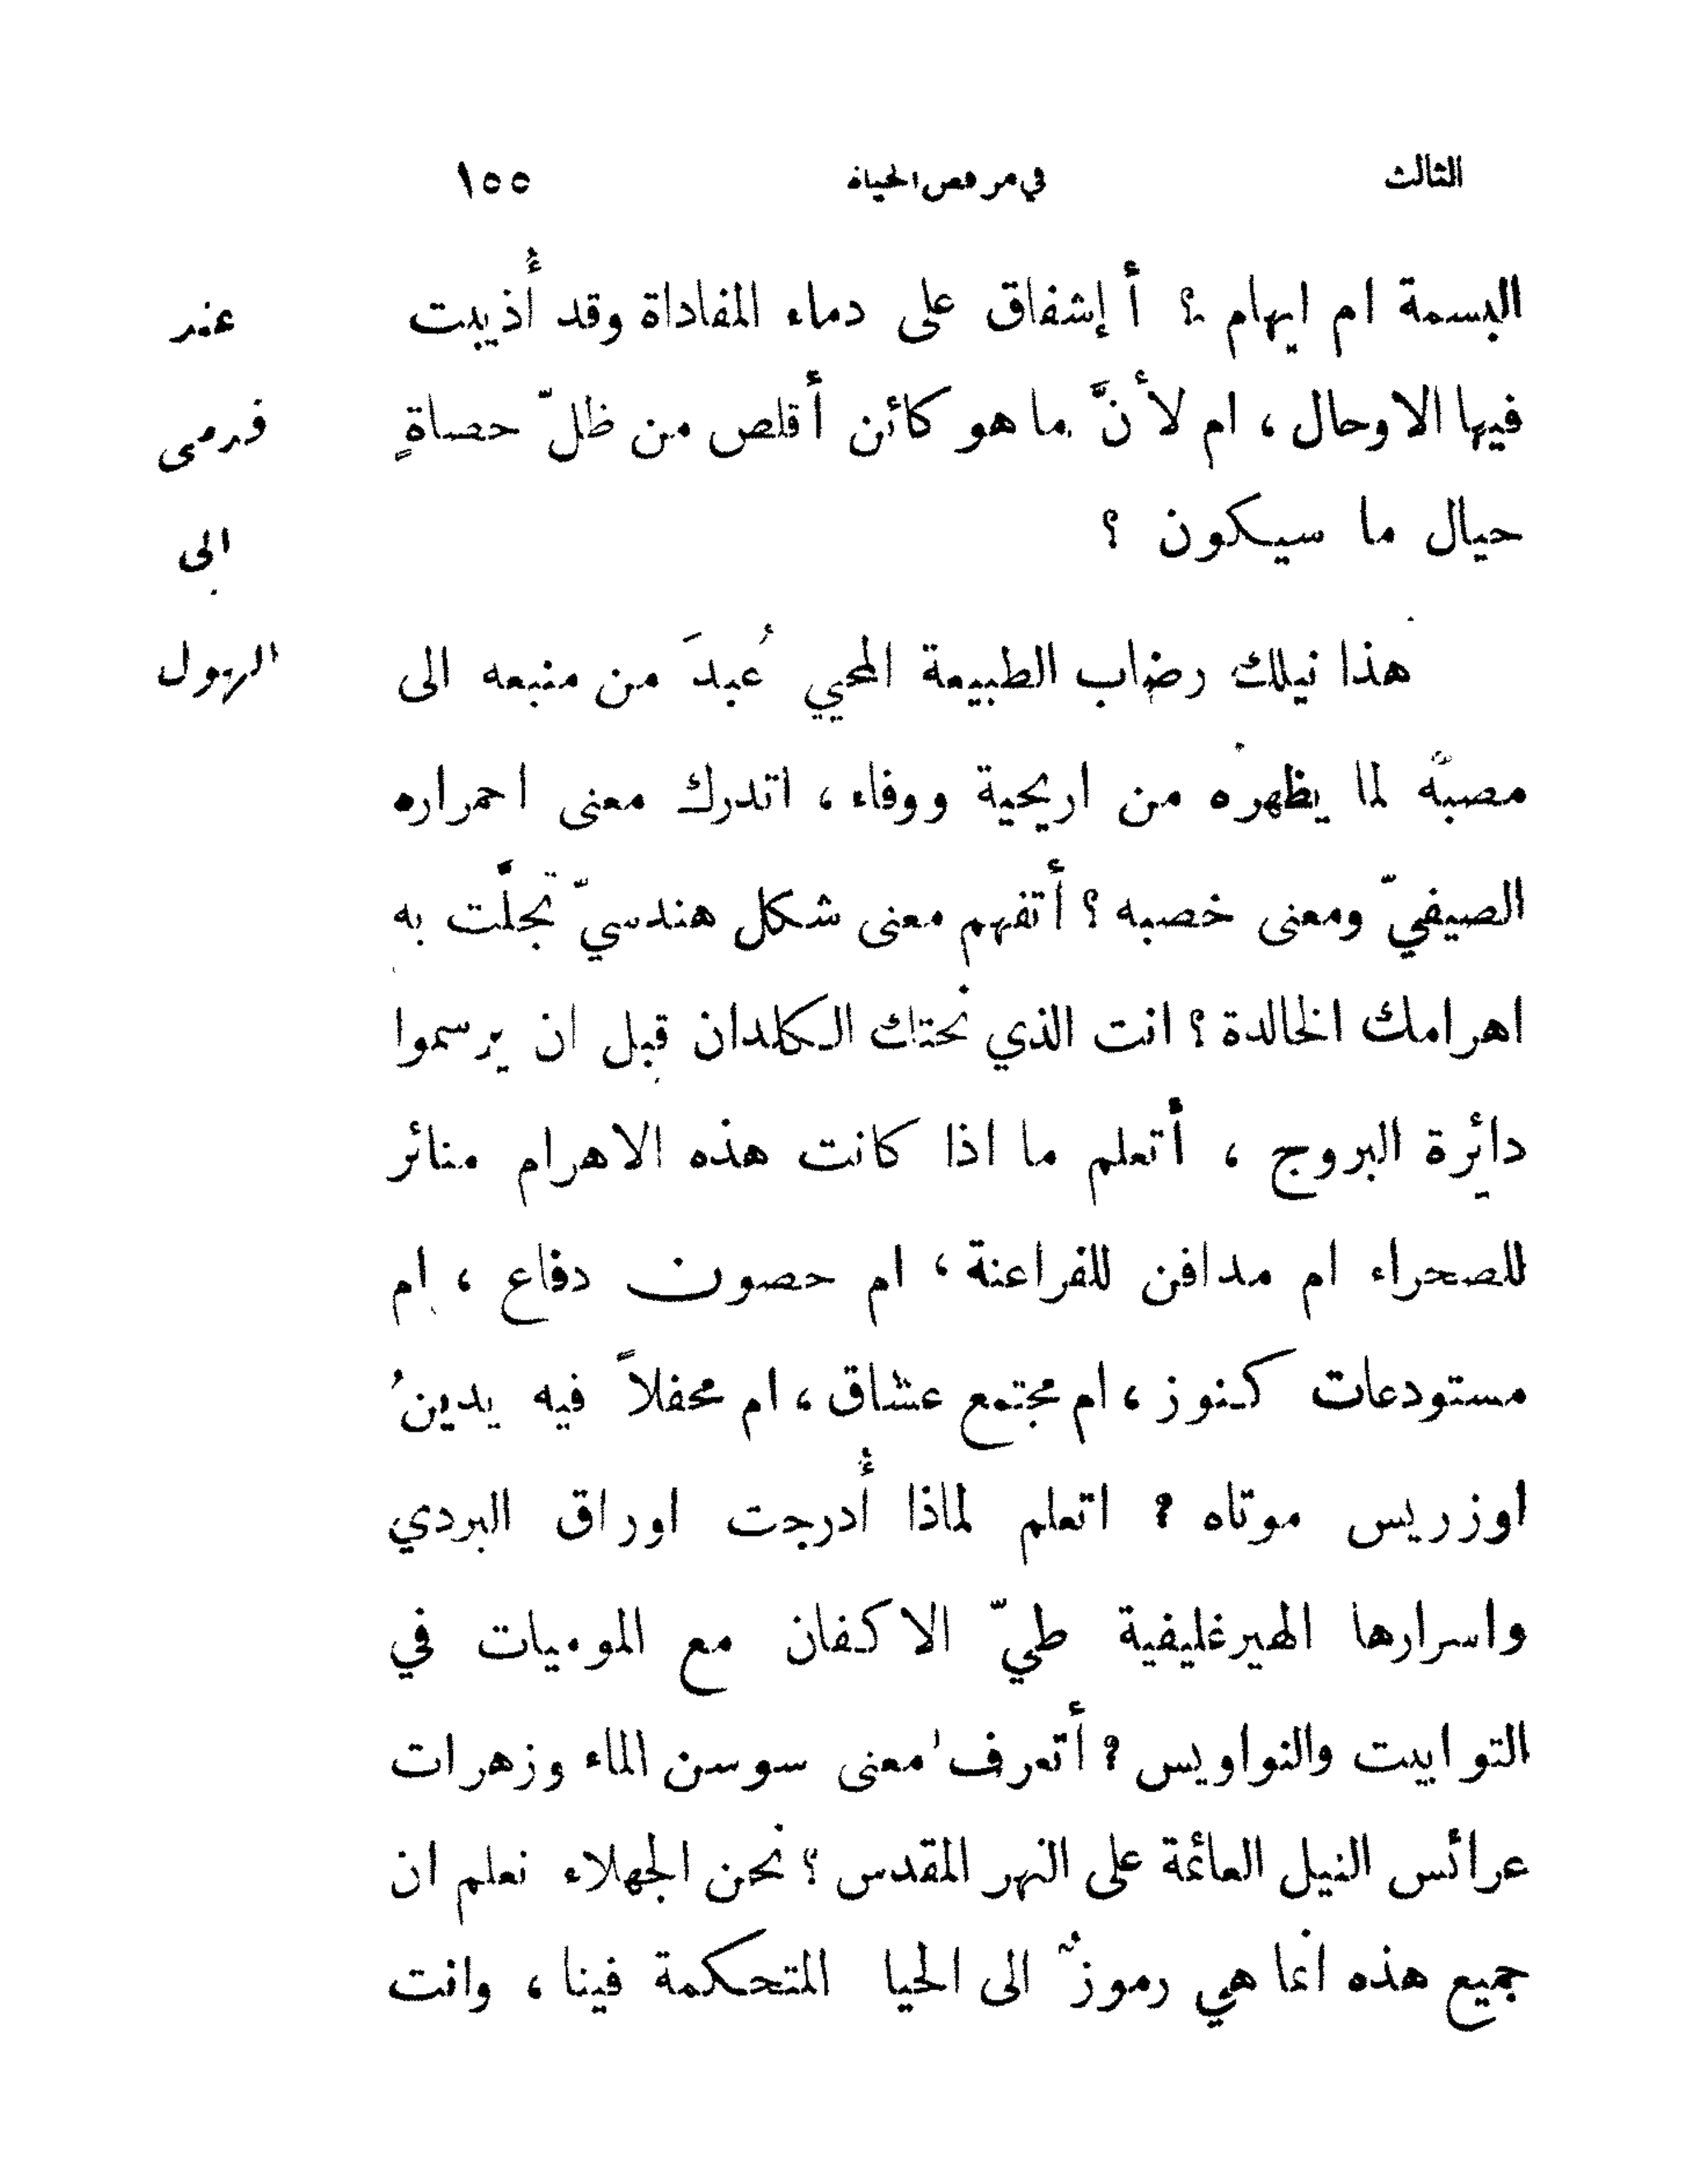 الثالث في مرقص الحياة ١٥٥
البسمة ام ايهام ؟ أ إشفاق على دماء المفاداة وقد أُذيبت
فيها الاوحال ، ام لأنَّ ما هو كائن أقلص من ظلّ حصاةٍ
حيال ما سيكون ؟
هذا نيلك رضاب الطبيعة المحيي عُبدَ من منبعه الى
مصبّه لما يظهره من اريحية ووفاء ، اتدرك معنى احمراره
الصيفيّ ومعنى خصبه ؟ أتفهم معنى شكل هندسيّ تجلَّت به
اهرامك الخالدة ؟ انت الذي نحتك الكلدان قبل ان يرسموا
دائرة البروج ، أتعلم ما اذا كانت هذه الاهرام منائر
للصحراء ام مدافن للفراعنة ، ام حصون دفاع ، ام
مستودعات كنوز ، ام مجتمع عشاق ، ام محفلاً فيه يدينُ
اوزريس موتاه ؟ اتعلم لماذا أُدرجت اوراق البردي
واسرارها الهيرغليفية طيّ الاكفان مع الموميات في
التوابيت والنواويس ؟ أتعرف معنى سوسن الماء وزهرات
عرائس النيل العائمة على النهر المقدس ؟ نحن الجهلاء نعلم ان
جميع هذه انما هي رموزٌ الى الحيا المتحكمة فينا ، وانت
عند
قدمي
الى
الهول